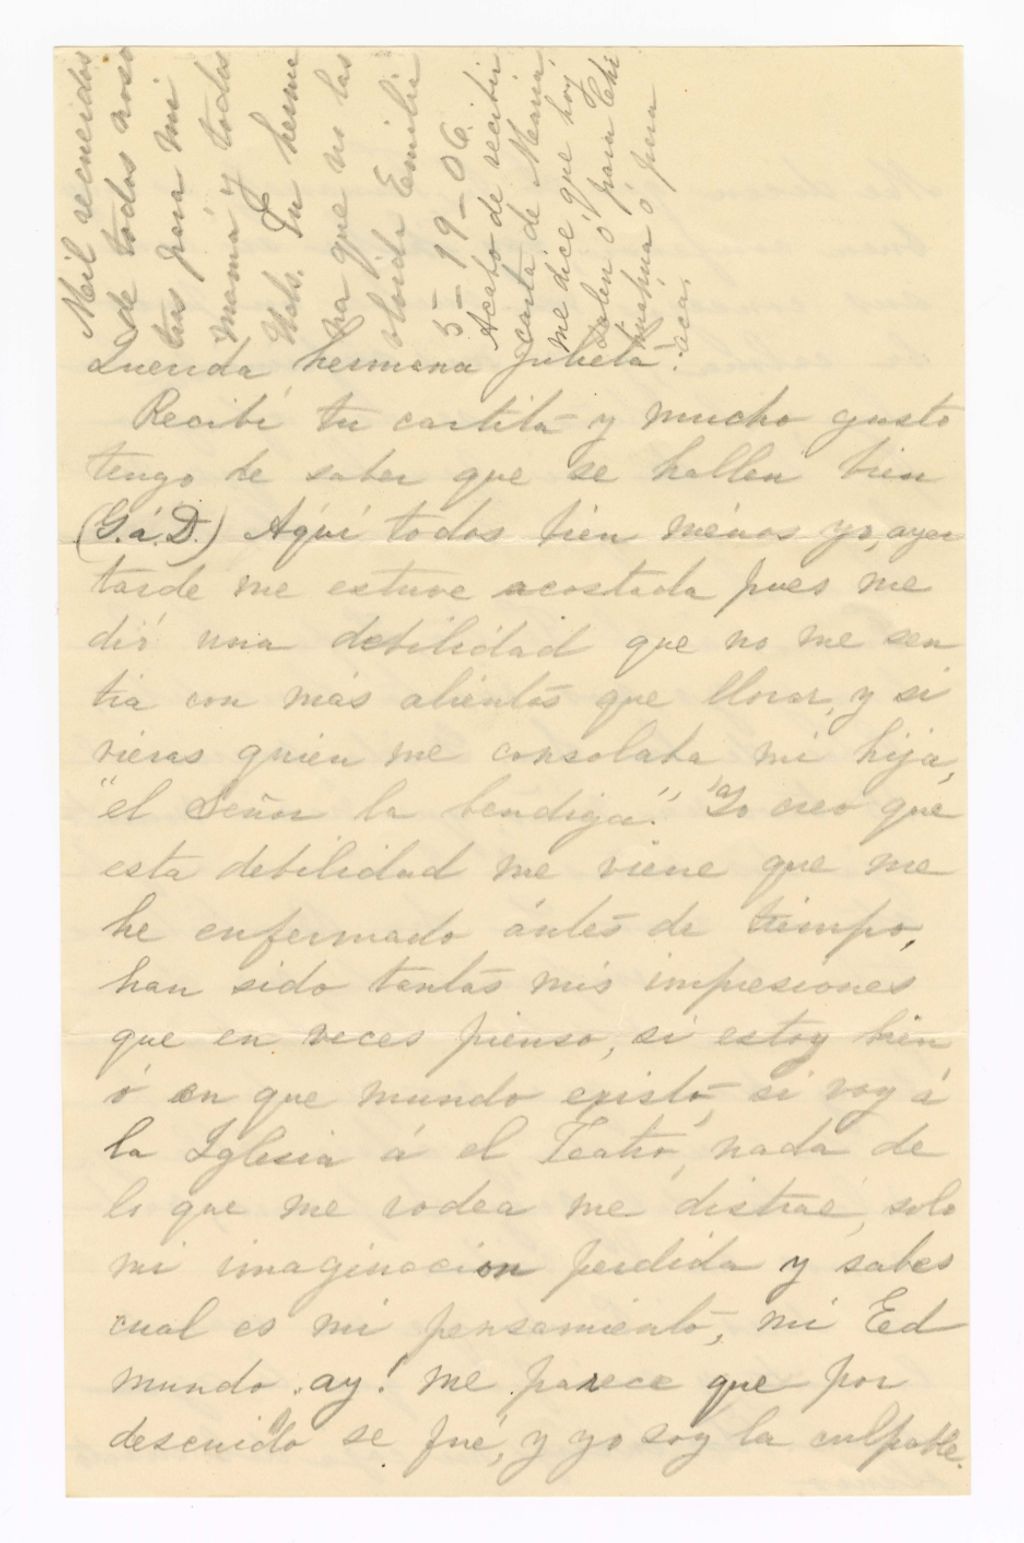 Querida hermana Julieta:
Recibí tu cartita y mucho gusto
tengo de saber que se hallen bien
(G. á. D.) Aquí todos bien ménos yo, ayer
tarde me estuve acostada pues me
dió una debilidad que no me sen
tia con más alientos que llorar, y si
vieras quien me consolaba mi hija,
"el Señor la bendiga." Yo creo que
esta debilidad me viene que me
he enfermado ántes de tiempo,
han sido tantas mis impresiones
que en veces pienso, si estoy bien
ó en que mundo existo, si voy á
la Iglesia á el Teatro, nada de
lo que me rodea me distrae, solo
mi imaginacion perdida y sabes
cual es mi pensamiento, mi Ed
mundo. ay! me parece que por
descuido se fué, y yo soy la culpable.
Mil recuerdos
de todos noso
tros para mi
mamá y todos
Uds. Tu herma
na que no las
olvida Emilia
5-19-06.
Acabo de recibir
carta de Maria,
me dice que hoy
salen ó para Chi
huahua ó para
aca.